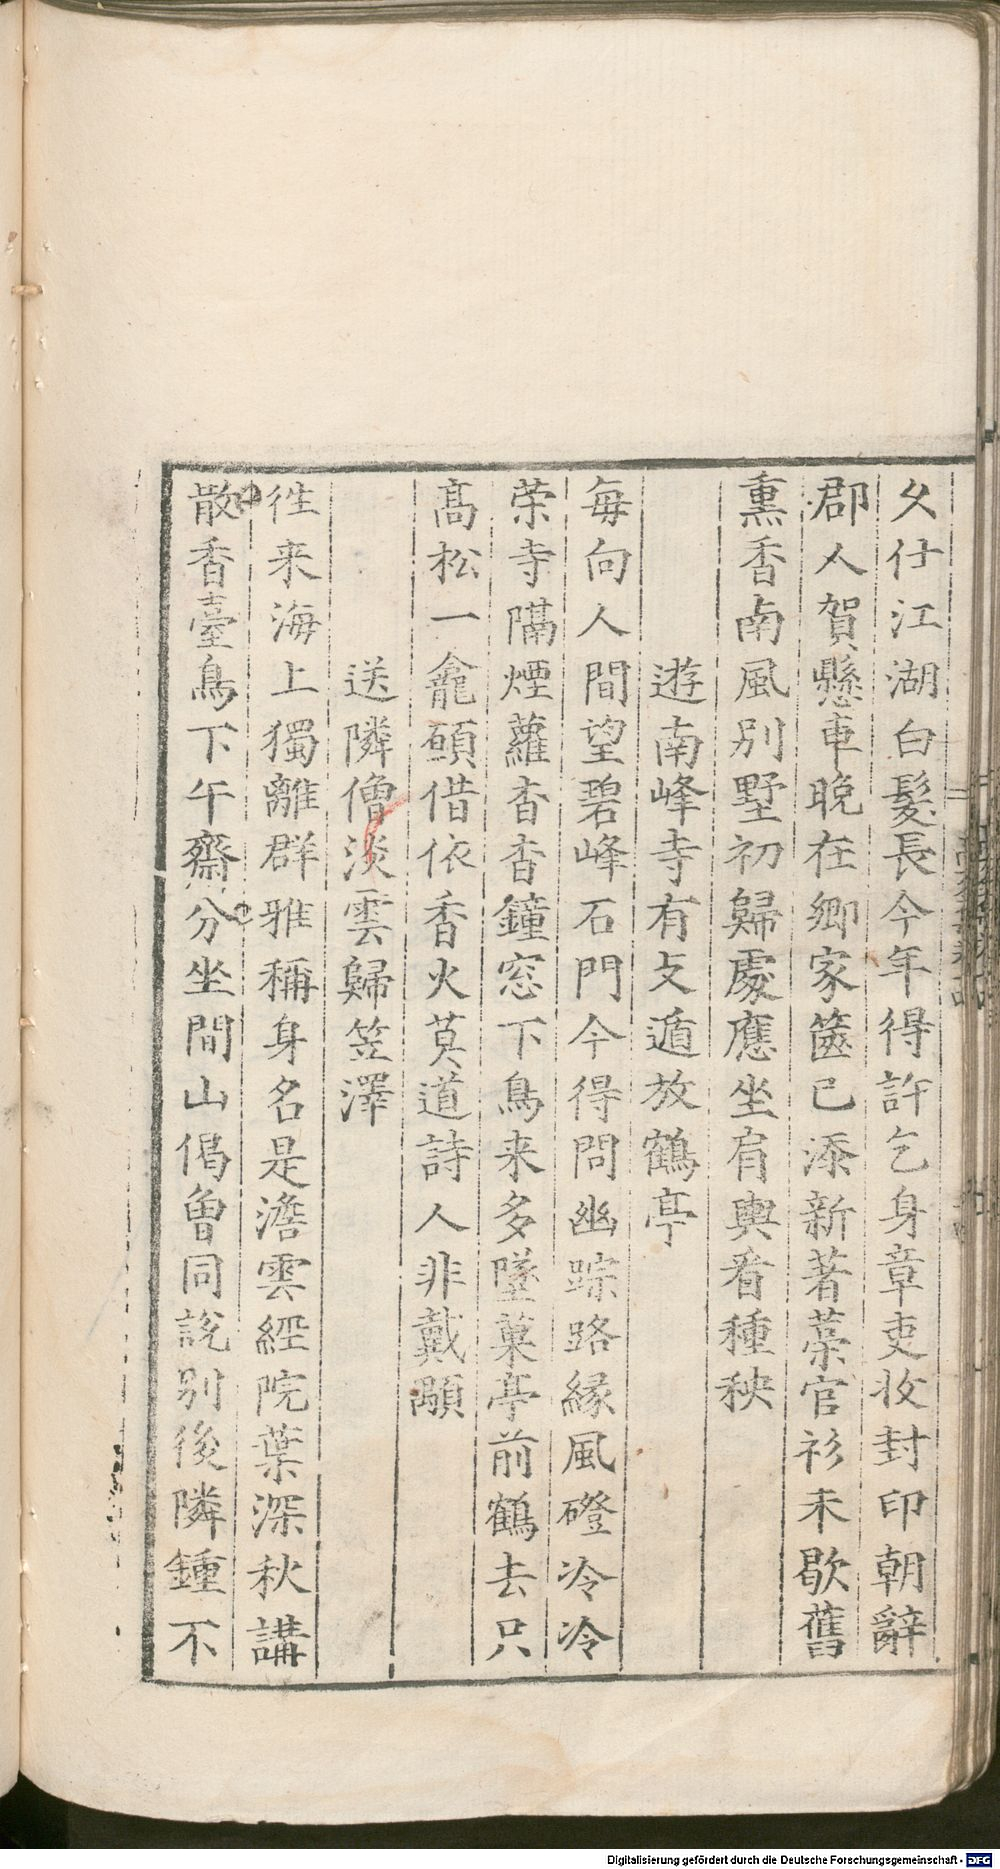 久仕江湖白髮長今年得許乞身章吏收封印朝辭
郡人賀懸車晚在卿家篋已添新著藁官衫未歇舊
熏香南風別墅初歸處應坐肩輿看種秧
遊南峰寺有支遁放鶴亭
每向人間望碧峰石門今得問幽踪路緣風磴冷冷
荣寺隔煙蘿杳杳鐘窓下鳥来多墜菓亭前鶴去只
高松一龕碩借依香火莫道詩人非戴顒
送隣僧淡雲歸笠澤
徃来海上獨離群雅稱身名是澹雲經院葉深秋講
散香臺鳥下午齋分坐間山偈曾同說別後隣鍾不
Digitalisierung gefördert durch die Deutsche Forschungsgemeinschaft - DFG